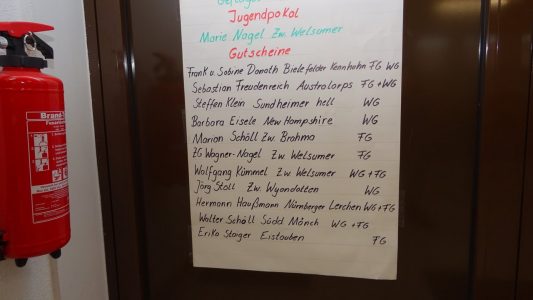 Geflügel
Jugendpokal
Marie Nagel Zw. Welsumer
Gutscheine
Frank u. Sabine Donath Bielefelder Kennhuhn FG WG
Sebastian Freudenreich Australorps FG + WG
Steffen Klein Sundheimer hell WG
Barbara Eisele New Hampshire WG
Marion Schäll Zw. Brahma FG
ZG Wagner-Nagel Zw. Welsumer FG
Wolfgang Kümmel Zw. Welsumer WG + FG
Jörg Stoll Zw. Wyandotten WG
Hermann Haußmann Nürnberger Lerchen WG + FG
Walter Schäll Südd Mönch WG + FG
Erika Staiger Eistauben FG
Brand